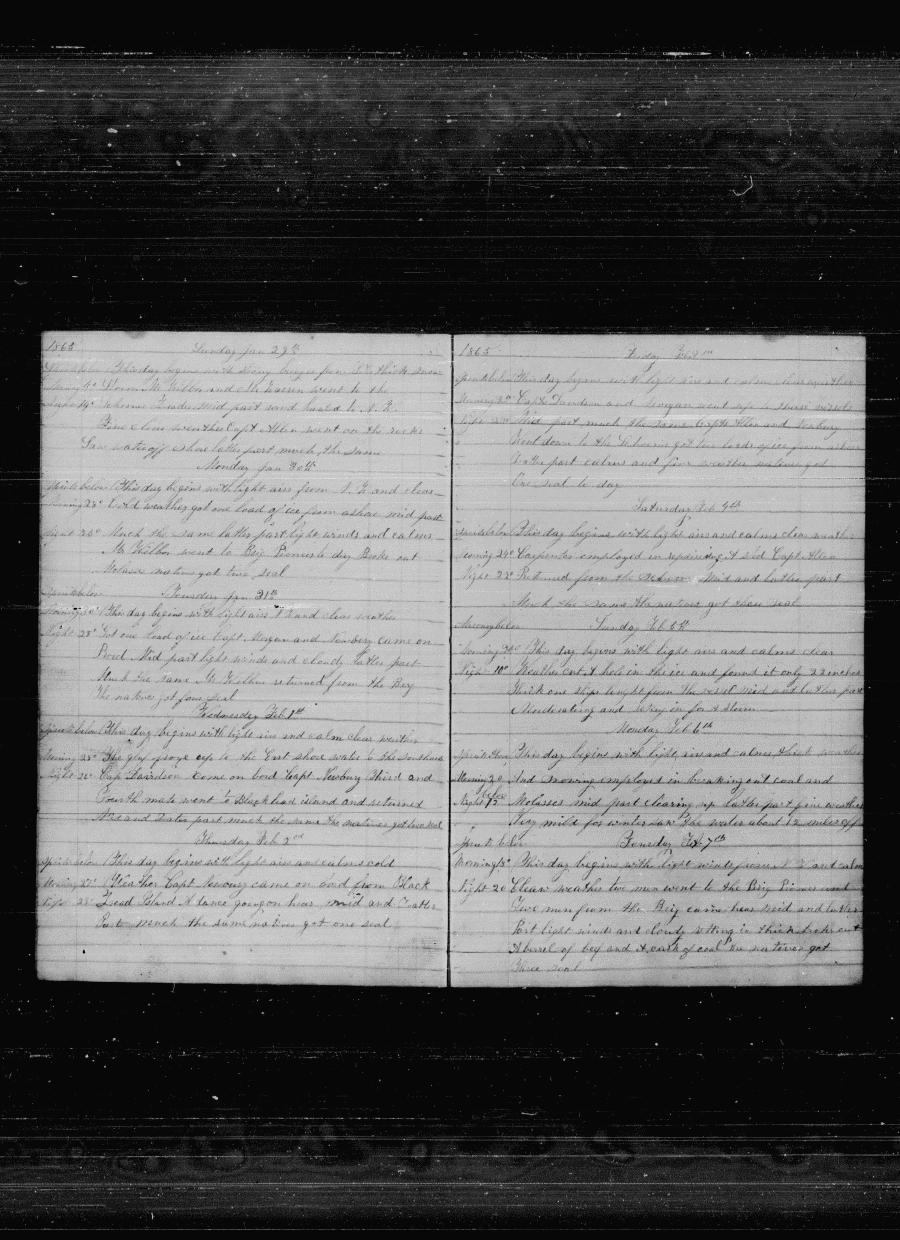 1865
Sunday Jan 29th
This day begins with
Morning 4° Storm Mr Wilbor and Mr went to the
mid part wind hauld to N. E.
Fine clear weather Capt Allen went on the rocks
Saw water off shore latter part much the same
Monday Jan 30th
Spirits below This day begins with light airs from N. E and clear
Morning 28° Cold weather got one load of ice from ashore mid part
Night 25° Much the same latter part light winds and calms
Mr Wilbor went to Brig Pioneer to dry Broke out
Molases natives got two seal
Spirits below Teusday Jan 31st
Morning 30° This day begins with light airs N E and clear weather
Night 28° Got one load of ice Capt Morgan and Newbery came on
Bord Mid part light winds and cloudy latter part
Much the same Mr Wilbor returned from the Brig
The natives got four seal
Wednesday Feb 1st
Spirits below This day begins with light airs and calm clear weather
Morning 28° The froze up to the East shore water to the Southard
Night 26° Capt Davidson came on bord Capt Newbury third and
Fourth mate went to Blacklead island and returned
Mid and latter part much the same the natives got two seal
Thursday Feb 2nd
Spirits below This day begins with light airs and calms cold
Morning 27° Weather Capt Newbury came on bord from Black
Night 28° Lead Island A dance going on hear mid and latter
Part much the same natives got one seal
1865
Friday Feb 3rd
Spirits below This day begins with light airs and calms clear weather
Morning 30° Capts Davidson and Morgan went
Mid part much the same Capts Allen and Newbury
Went down to the got two loads of ice from ashore
Latter part calms and fine weather natives got
One seal to day
Saturday Feb 4th
Spirits below This day begins with light airs and calms clear weather
Morning 24° Carpenter employed in repairing A sled Capt Allen
Night 22° Returned from the Mid and latter part
Much the same the natives got three seal
Mercury below Sunday Feb 5th
Morning 30° This day begins with light airs and calms clear
Night 10° Weather cut A hole in the ice and found it only 22 inches
Thick one ships lenght from the vessel mid and latter part
Moderating and for A storm
Monday Feb 6th
Spirits Above This day begins with light airs and calms thick weather
Morning 20 And snowing employed in breaking out coal and
Above
Night 12 Molasses mid part clearing up latter part fine weather
Very mild for winter saw the water about 12 miles off
Spirits below Teusday Feb 7th
Morning 15° This day begins with light winds from N. W and calm
Night 20 Clear weather two men went to the Brig Pioneer and
Five men from the Brig came hear Mid and latter
Part light winds and cloudy setting in thick broke out
A barrel of beef and A cask of coal the natives got
Three seal